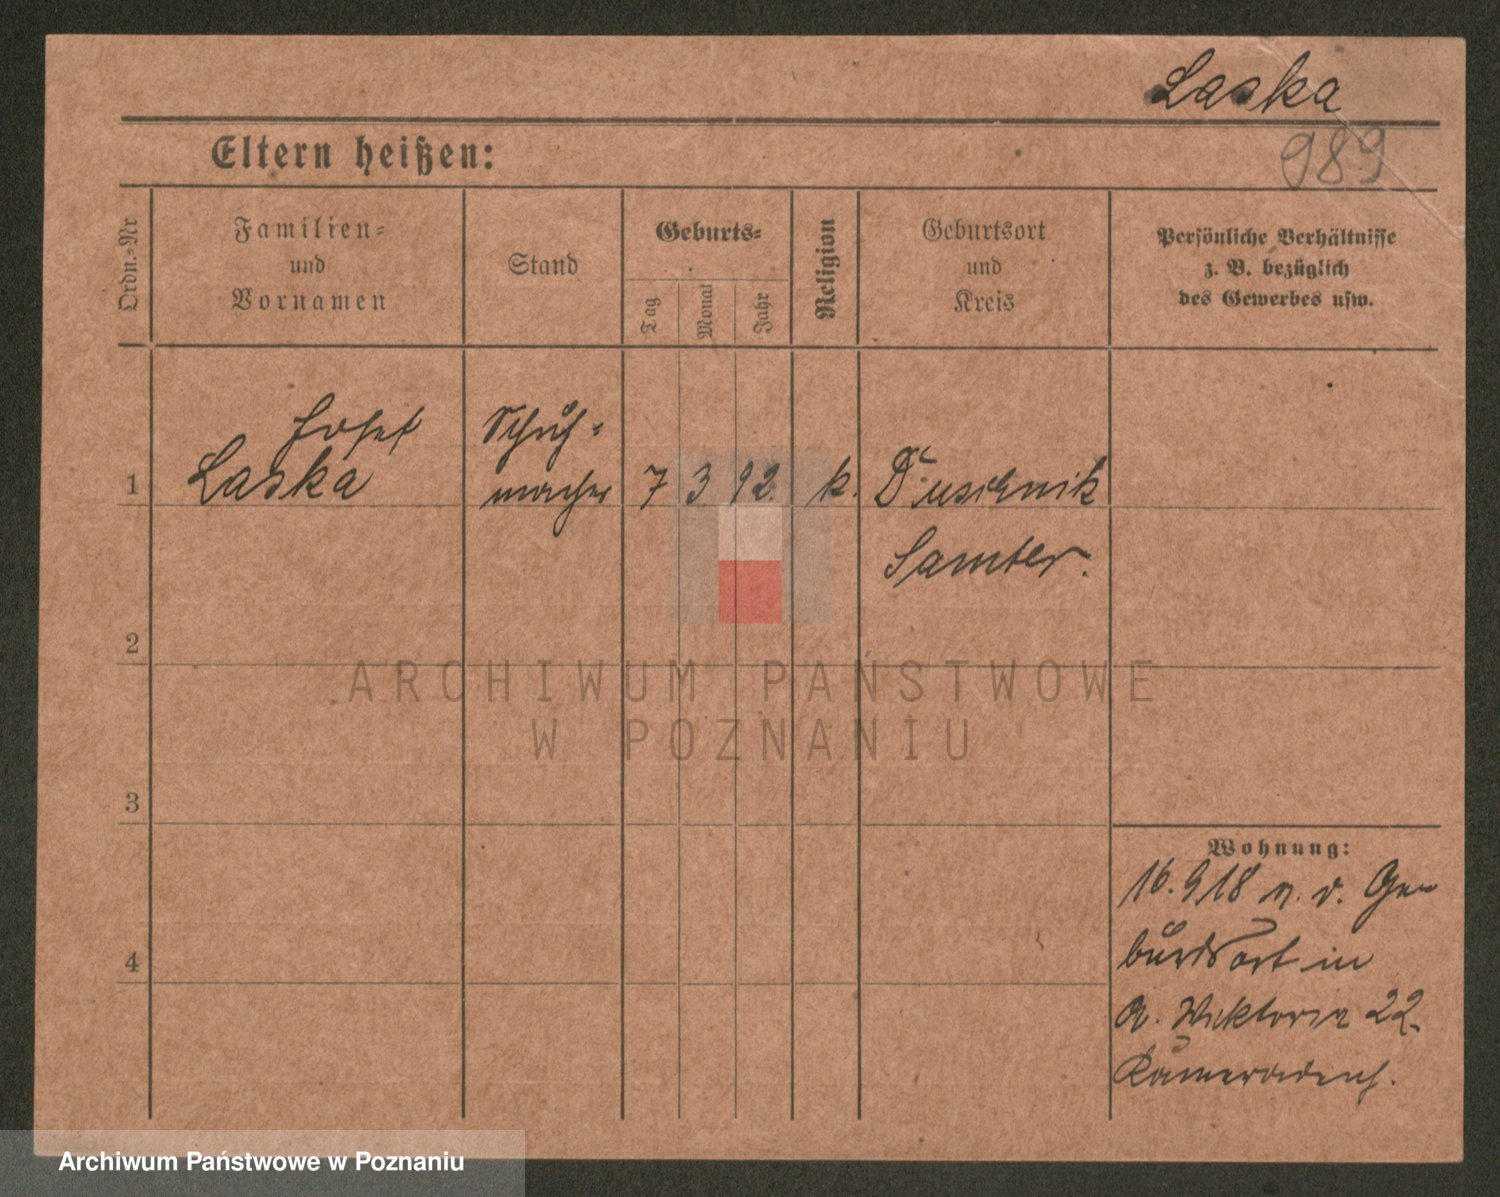 Laska
Eltern heißen:
989
Ordn.-Nr
Familien-
und
Vornamen
Stand
Geburts-
Tag
Monat
Jahr
Religion
Geburtsort
und
Kreis
Persönliche Verhältnisse
z. B. bezüglich
des Gewerbes usw.
Josef
Laska
Schuh-
macher
1
7 3 92. k.
Duschnik
Samter.
2
3
4
Wohnung:
16. 9 18 n. d. Ge-
burtsort in
A. Wiktoria 22.
ARCHIWUM PAŃSTWOWE
W POZNANIU
Archiwum Państwowe w Poznaniu